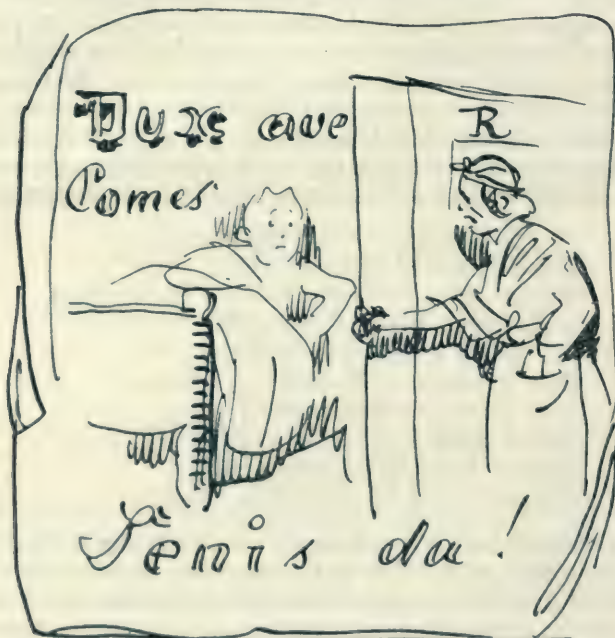 Dux ave
Comes
R
Fenis da!